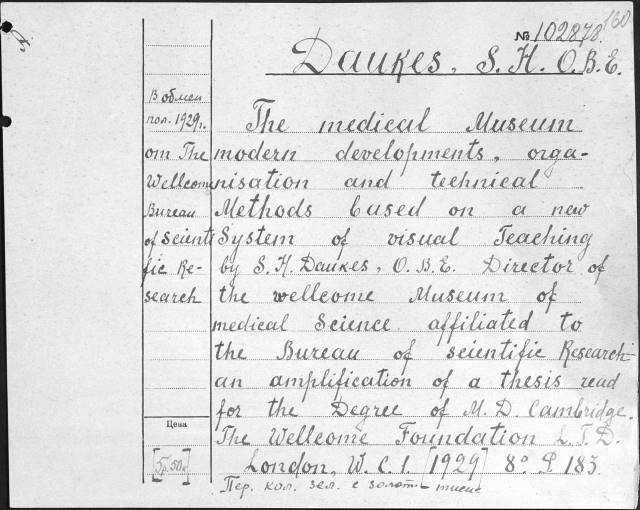 160
№ 102878.
Daukes, S. H. O.B.E.
В обмен
пол. 1929г.
от The
Wellcome
Bureau
of Scienti
fic Re-
search
The medical Museum
modern developments, orga-
nisation and technical
Methods based on a new
System of visual Teaching
by S. H. Daukes, O.B.E. Director of
the wellcome Museum of
medical Science affiliated to
the Bureau of scientific Research
an amplification of a thesis read
for the Degree of M. D. Cambridge.
The Wellcome Foundation L.T.D.
London, W. C. 1. [1929] 8° P. 183.
Цена
Пер. кол. зел. с золот. тисн